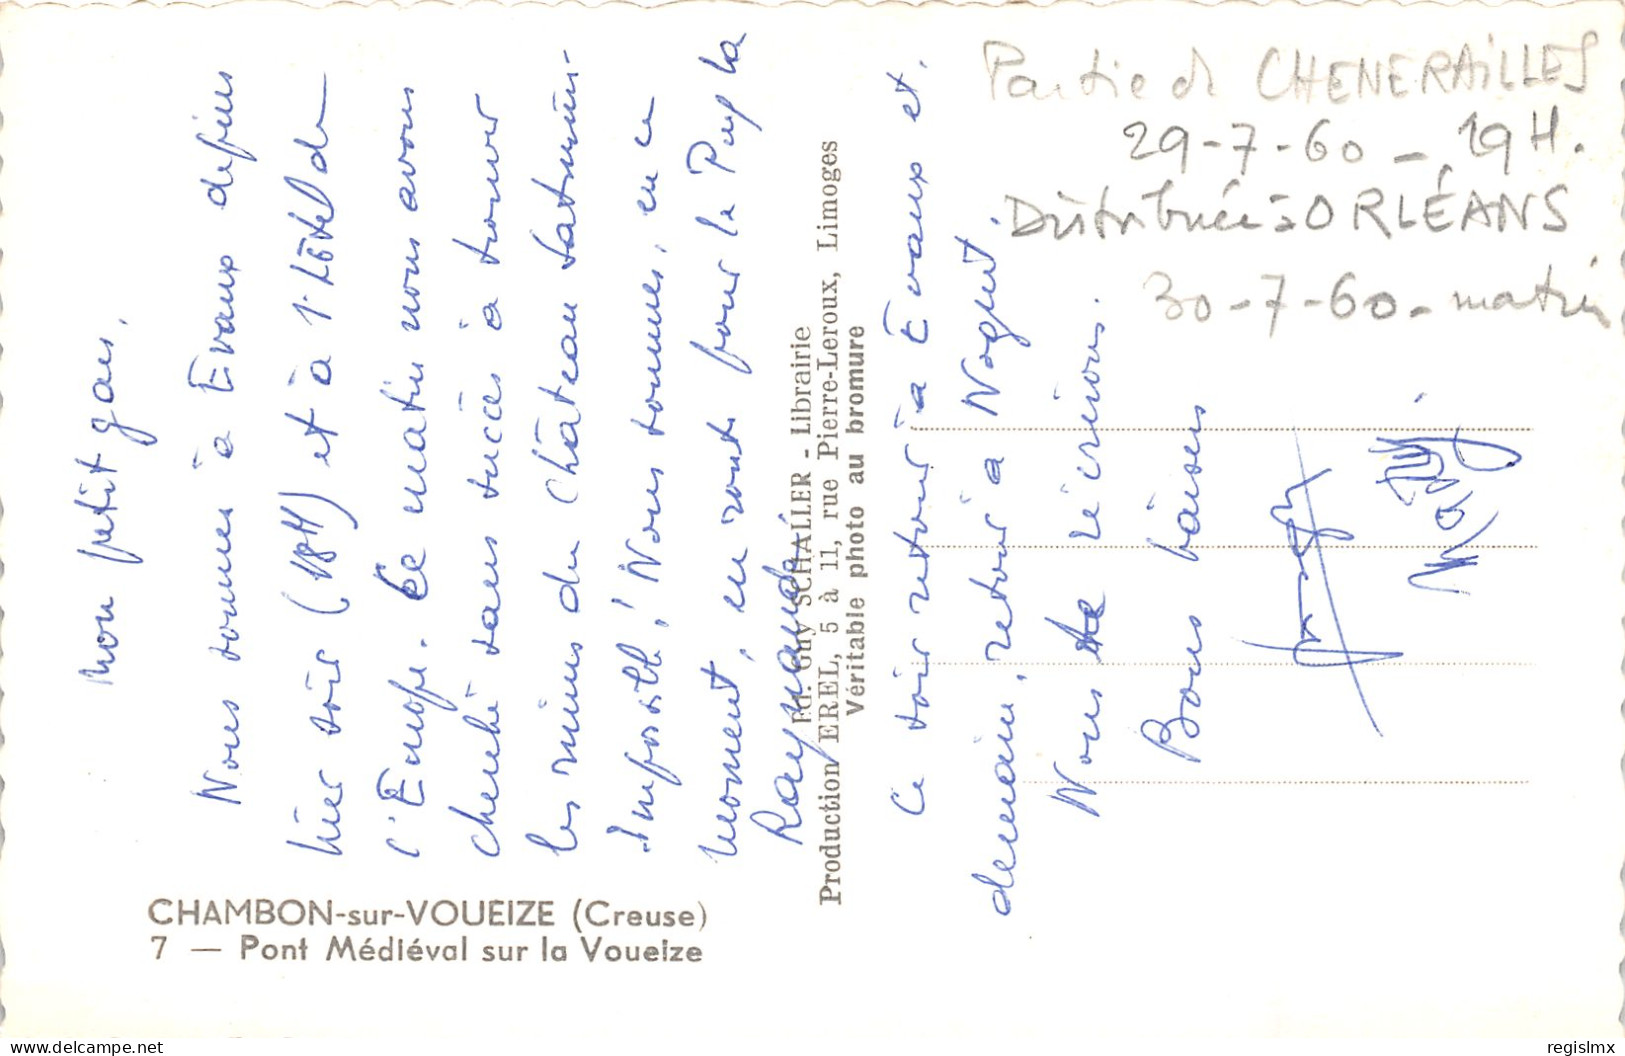 Mon petit gars,
Nous sommes à Evaux depuis
hier soir (18H) et à l'Hôtel de
l'Europe. Ce matin nous avons
cherché sans succès à trouver
les ruines du Château
Impossible! Nous sommes, en ce
moment, en route pour le Puy la
Raymonde
Ce soir retour à Evaux et,
demain, retour à Nogent.
Nous te l'écrirons.
Bons baisers
Many
Partie de CHENERAILLES
29-7-60 - 19H.
Distribuée à ORLÉANS
30-7-60 - matin
Ed. Guy SCHALLER - Librairie
Production EREL, 5 à 11, rue Pierre-Leroux, Limoges
Véritable photo au bromure
CHAMBON-sur-VOUEIZE (Creuse)
7 — Pont Médiéval sur la Voueize
Delcampe.net
regislmx